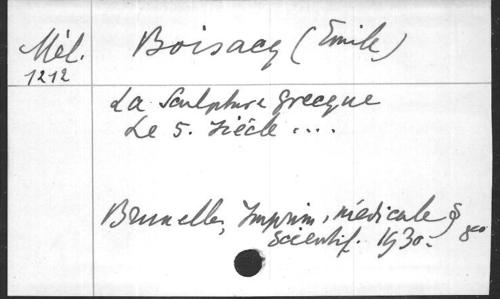 Mél.
1212
Boisacq (Emile)
La Sculpture grecque
Le 5. Siècle ....
Bruxelles, Imprim. médicale &
Scientif. 1930.-
8co